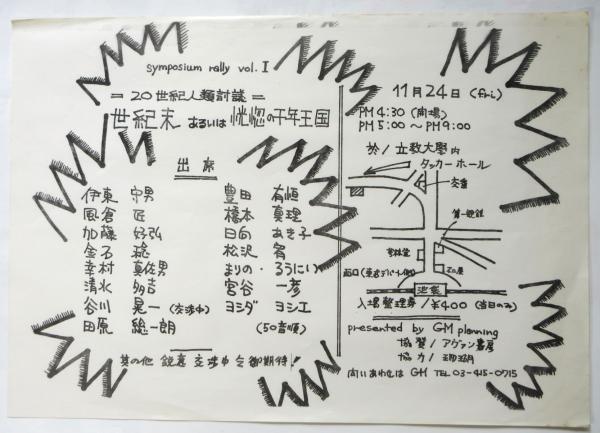 symposium rally vol. I
= 20世紀人類討議 =
世紀末 あるいは 恍惚の千年王国
出席
伊東 守男
風倉 匠
加藤 好弘
金石 稔
幸村 真佐男
清水 多吉
谷川 晃一 (交渉中)
田原 総一朗
豊田 有恒
橋本 真理
日向 あき子
松沢 宥
まりの・るうにい
宮谷 一彦
ヨシダ ヨシエ
(50音順)
其の他 鋭意 交渉中 乞御期待!
11月24日 (fri)
PM 4:30 (開場)
PM 5:00 〜 PM 9:00
於/立教大學内
タッカーホール
交番
第一地銀
芳林堂
西口(東武デパート側)
池袋
入場整理券/¥400 (当日のみ)
presented by GM planning
協賛/アヴァン書房
協力/珊瑚
問いあわせは GM TEL 03-415-0715